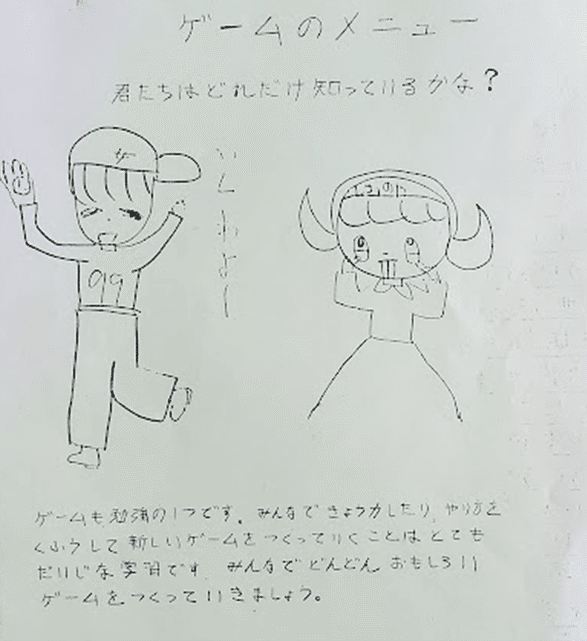 ゲームのメニュー
君たちはどれだけ知っているかな？
いくわよー
99
ゲームも勉強の1つです。みんなできょう力したり、やり方を
くふうして新しいゲームをつくっていくことはとても
だいじな学習です。みんなでどんどんおもしろい
ゲームをつくっていきましょう。